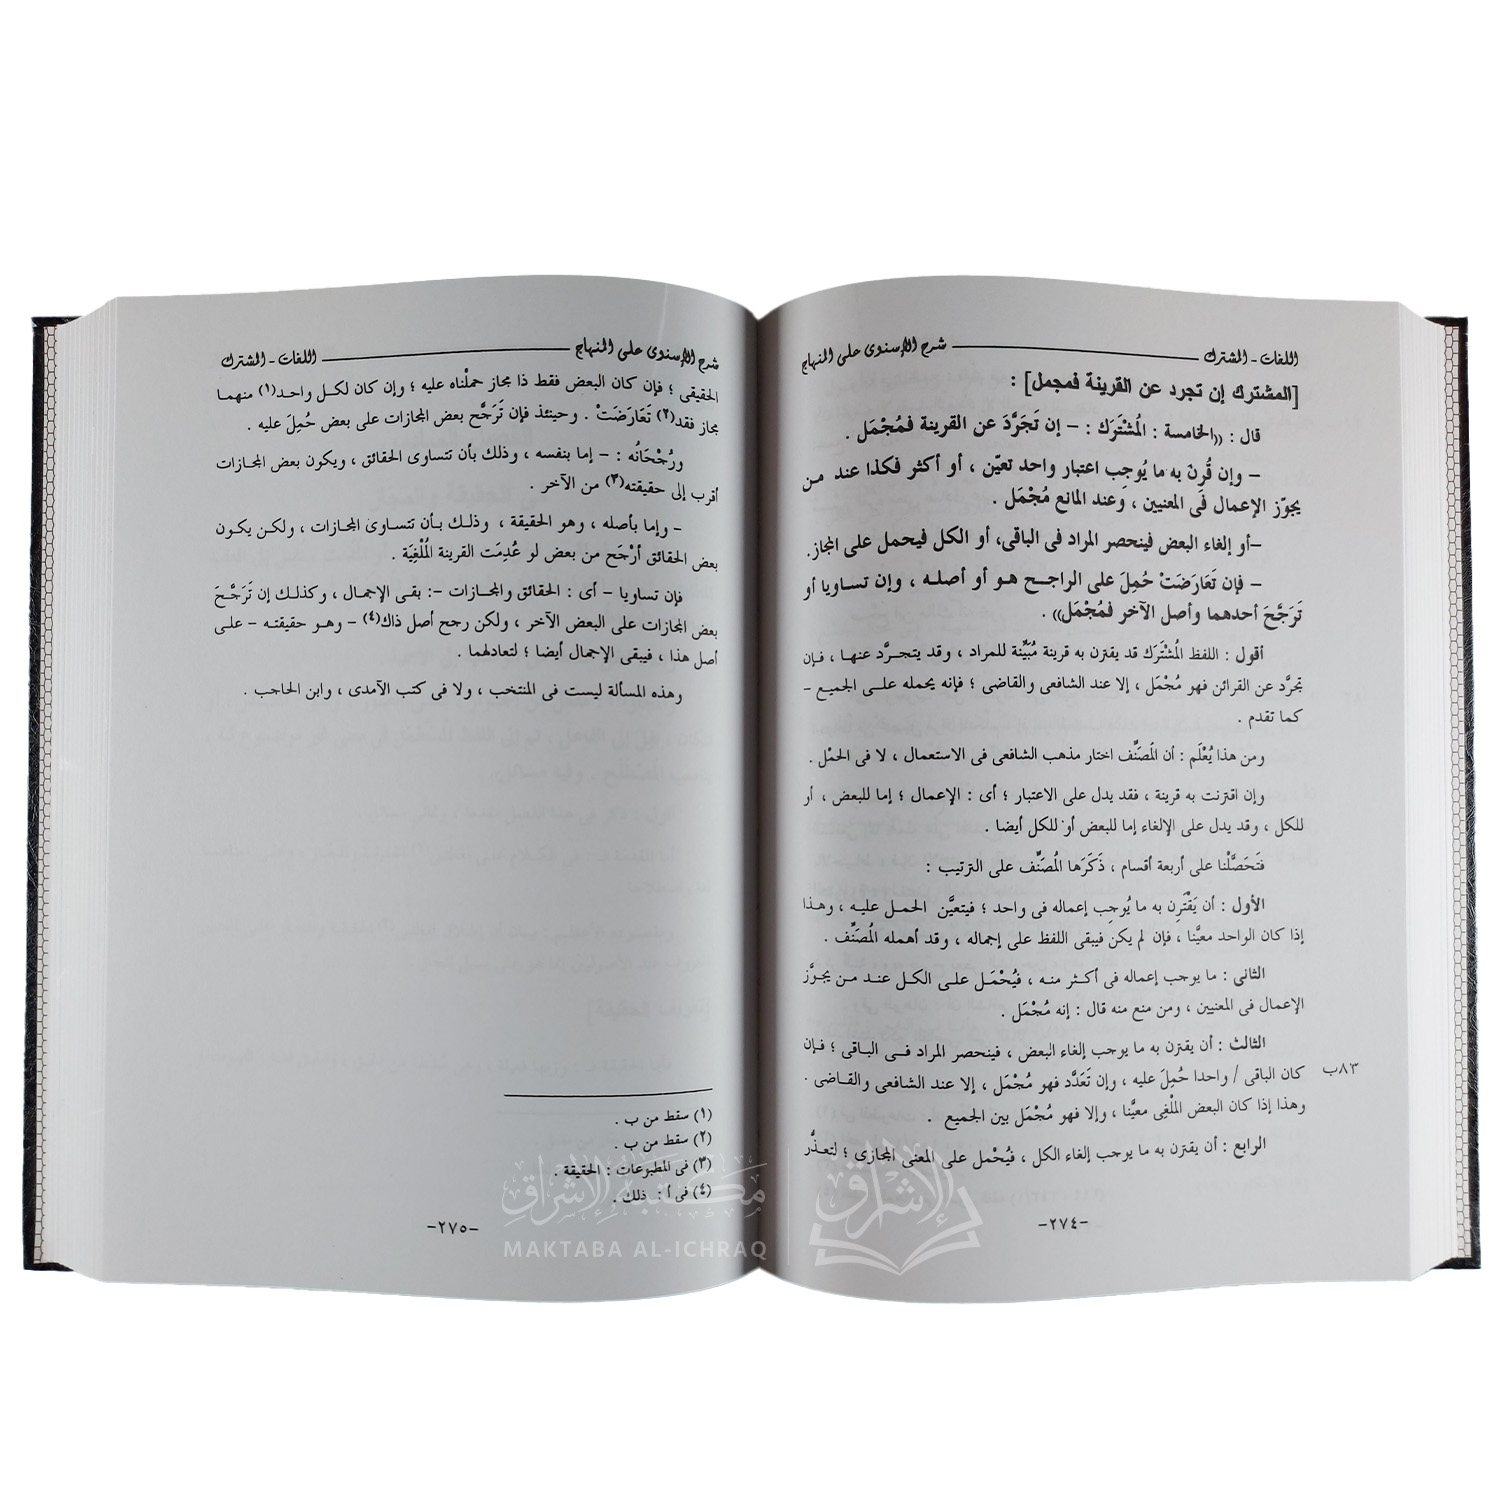 اللغات - المشترك شرح الإسنوى على المنهاج
[المشترك إن تجرد عن القرينة فمجمل] :
قال : «الخامسة : المُشْتَرَك : – إن تَجَرَّدَ عن القرينة فمُجْمَل .
– وإن قُرِنَ به ما يُوجِب اعتبار واحد تعيّن ، أو أكثر فكذا عند من
يجوّز الإعمال فى المعنيين ، وعند المانع مُجْمَل .
–أو إلغاء البعض فينحصر المراد فى الباقى، أو الكل فيحمل على المجاز.
– فإن تَعَارَضَتْ حُمِلَ على الراجح هو أو أصله ، وإن تساويا أو
تَرَجَّحَ أحدهما وأصل الآخر فمُجْمَل» .
أقول : اللفظ المُشْتَرَك قد يقترن به قرينة مُبَيِّنة للمراد ، وقد يتجرَّد عنها ، فإن
تجرَّد عن القرائن فهو مُجْمَل ، إلا عند الشافعى والقاضى ؛ فإنه يحمله على الجميع –
كما تقدم .
ومن هذا يُعْلَم : أن المُصَنِّف اختار مذهب الشافعى فى الاستعمال ، لا فى الحمْل .
وإن اقترنت به قرينة ، فقد يدل على الاعتبار ؛ أى : الإعمال ؛ إما للبعض ، أو
للكل ، وقد يدل على الإلغاء إما للبعض أو للكل أيضا .
فتَحَصَّلْنا على أربعة أقسام ، ذَكَرَها المُصَنِّف على الترتيب :
الأول : أن يَقْتَرِن به ما يُوجِب إعماله فى واحد ؛ فيتعيَّن الحمل عليه ، وهذا
إذا كان الواحد معيَّنا ، فإن لم يكن فيبقى اللفظ على إجماله ، وقد أهمله المُصَنِّف .
الثانى : ما يوجب إعماله فى أكثر منه ، فيُحْمَل على الكل عند من يجوَّز
الإعمال فى المعنيين ، ومن منع منه قال : إنه مُجْمَل .
الثالث : أن يقترن به ما يوجب إلغاء البعض ، فينحصر المراد فى الباقى ؛ فإن
كان الباقى / واحدا حُمِلَ عليه ، وإن تَعَدَّد فهو مُجْمَل ، إلا عند الشافعى والقاضى . ٨٣ب
وهذا إذا كان البعض المُلْغِى معيَّنا ، وإلا فهو مُجْمَل بين الجميع .
الرابع : أن يقترن به ما يوجب إلغاء الكل ، فيُحْمل على المعنى المجازى ؛ لتعذُّر
-٢٧٤-
شرح الإسنوى على المنهاج اللغات - المشترك
الحقيقى ؛ فإن كان البعض فقط ذا مجاز حملْناه عليه ؛ وإن كان لكل واحد(١) منهما
مجاز فقد(٢) تَعَارَضَتْ . وحينئذ فإن تَرَجَّح بعض المجازات على بعض حُمِلَ عليه .
ورُجْحَانُه : – إما بنفسه ، وذلك بأن تتساوى الحقائق ، ويكون بعض المجازات
أقرب إلى حقيقته(٣) من الآخر .
– وإما بأصله ، وهو الحقيقة ، وذلك بأن تتساوى المجازات ، ولكن يكون
بعض الحقائق أرْجَح من بعض لو عُدِمَت القرينة المُلْغِيَة .
فإن تساويا – أى : الحقائق والمجازات –: بقى الإجمال ، وكذلك إن تَرَجَّحَ
بعض المجازات على البعض الآخر ، ولكن رجح أصل ذاك(٤) – وهو حقيقته – على
أصل هذا ، فيبقى الإجمال أيضا ؛ لتعادلهما .
وهذه المسألة ليست فى المنتخب ، ولا فى كتب الآمدى ، وابن الحاجب .
(١) سقط من ب .
(٢) سقط من ب .
(٣) فى المطبوعات : الحقيقة .
(٤) فى أ : ذلك .
-٢٧٥-
مكتبة الإشراق
MAKTABA AL-ICHRAQ
الإشراق